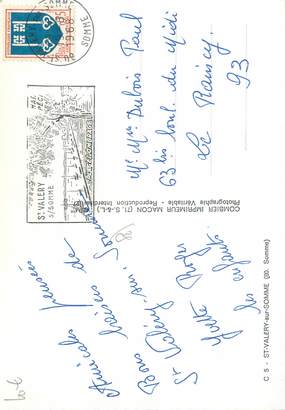 C S - ST-VALERY-sur-SOMME (80. Somme)
Amicales pensées de
Bons baisers
St Valéry sur Somme
Yvette Roger
les enfants
COMBIER IMPRIMEUR MACON (71. S.-&-L.)
Photographie Véritable - Reproduction Interdite
1968
SOMME
ST VALERY
S/SOMME
Mr Mme Dubois Paul
63 bis boul. du Midi
Le Raincy
93